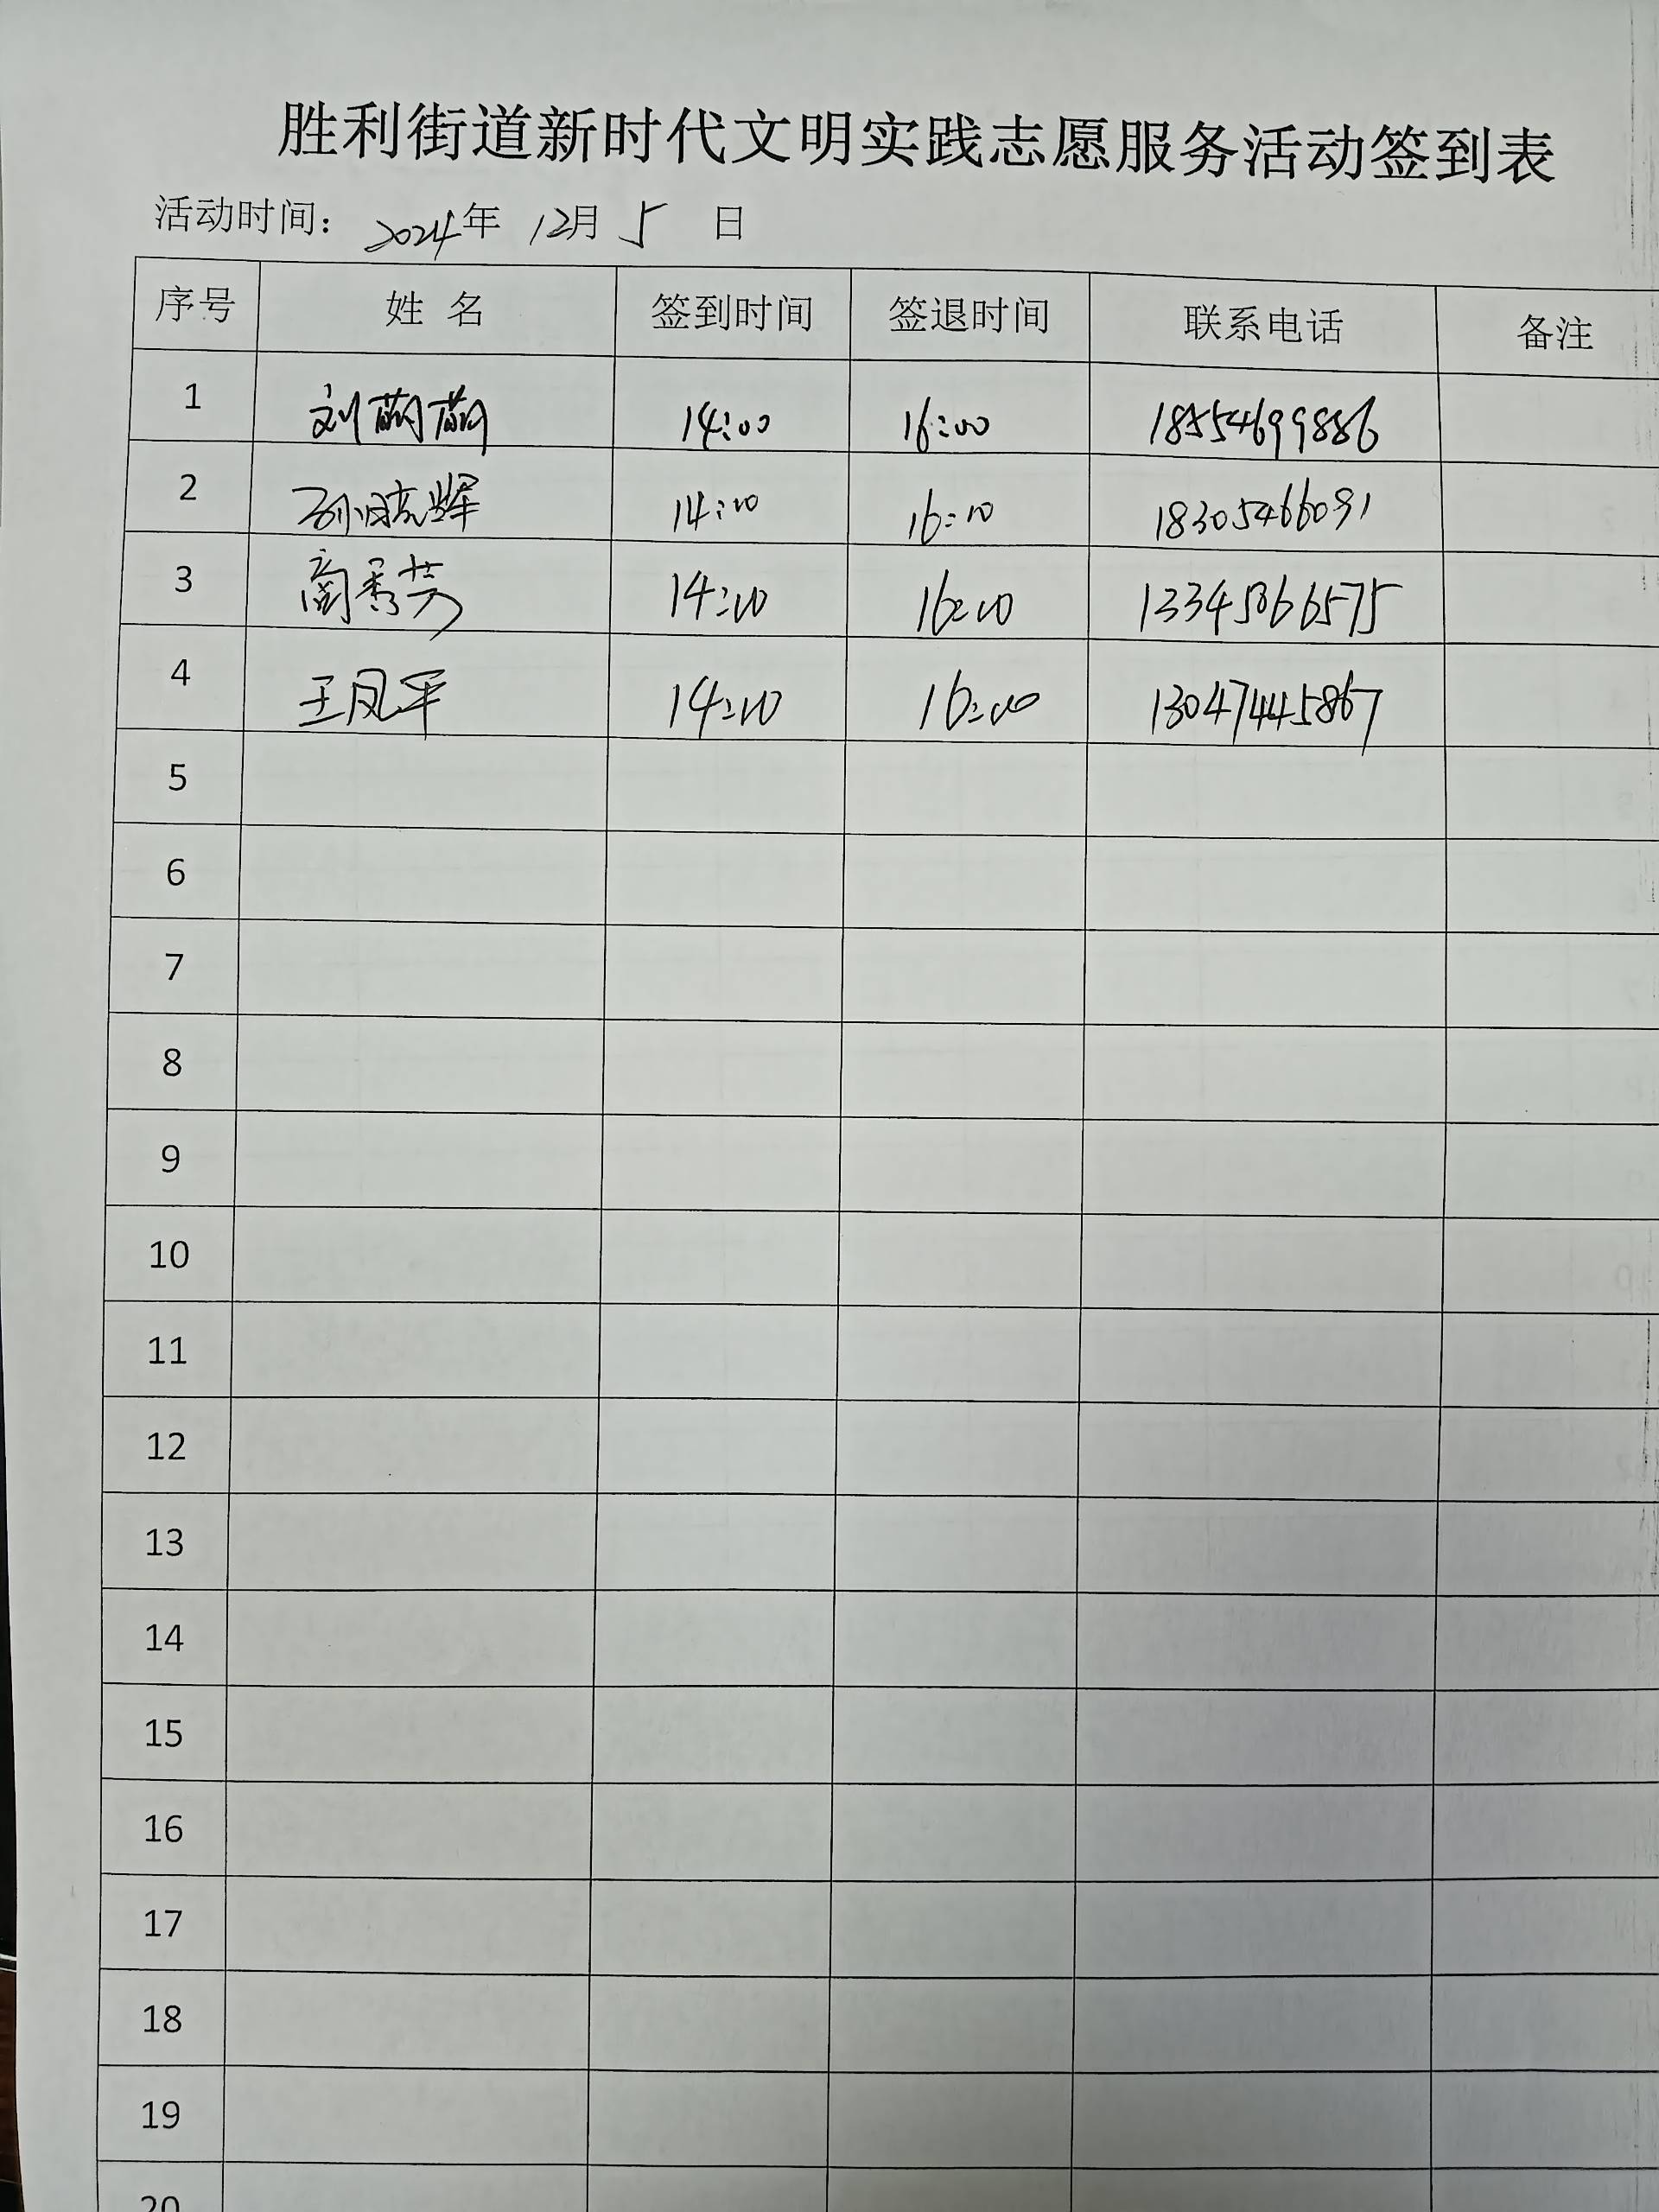 胜利街道新时代文明实践志愿服务活动签到表
活动时间: 2024年 12月 5 日
序号 姓 名 签到时间 签退时间 联系电话 备注
1 刘萌萌 14:00 16:00 18554699886
2 孙晓辉 14:00 16:00 18305466091
3 14:00 16:00 13345066575
4 王凤军 14:00 16:00 13047445867
5
6
7
8
9
10
11
12
13
14
15
16
17
18
19
20